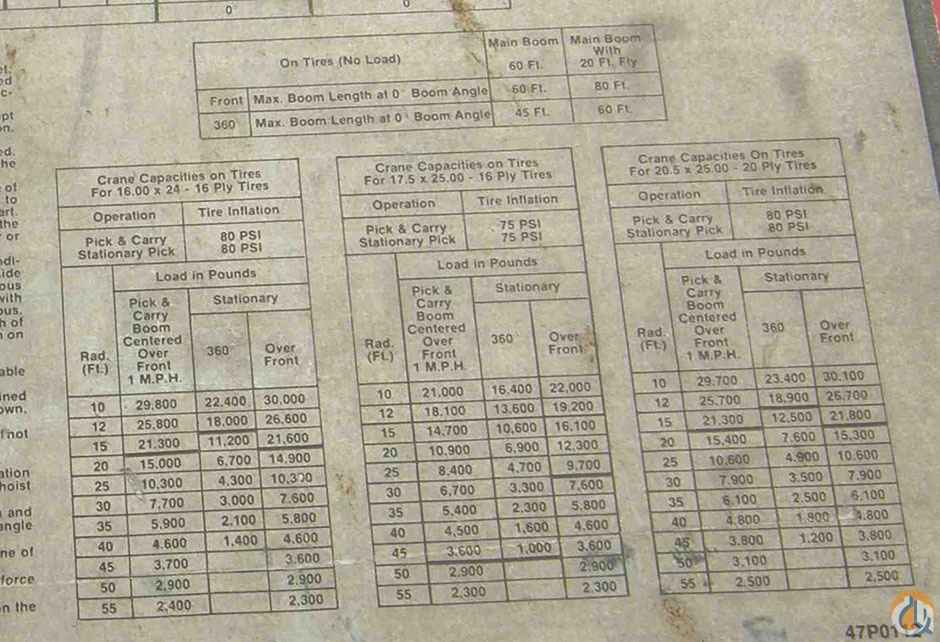 0 0
On Tires (No Load) Main Boom 60 Ft. Main Boom With 20 Ft. Fly
Front Max. Boom Length at 0° Boom Angle 60 Ft. 80 Ft.
360° Max. Boom Length at 0° Boom Angle 45 Ft. 60 Ft.
Crane Capacities on Tires
For 16.00 x 24 - 16 Ply Tires
Operation Tire Inflation
Pick & Carry 80 PSI
Stationary Pick 80 PSI
Load in Pounds
Rad. (Ft.) Pick & Carry Boom Centered Over Front 1 M.P.H. Stationary 360° Over Front
10 29,800 22,400 30,000
12 25,800 18,000 26,600
15 21,300 11,200 21,600
20 15,000 6,700 14,900
25 10,300 4,300 10,300
30 7,700 3,000 7,600
35 5,900 2,100 5,800
40 4,600 1,400 4,600
45 3,700 3,600
50 2,900 2,900
55 2,400 2,300
Crane Capacities on Tires
For 17.5 x 25.00 - 16 Ply Tires
Operation Tire Inflation
Pick & Carry 75 PSI
Stationary Pick 75 PSI
Load in Pounds
Rad. (Ft.) Pick & Carry Boom Centered Over Front 1 M.P.H. Stationary 360° Over Front
10 21,000 16,400 22,000
12 18,100 13,600 19,200
15 14,700 10,600 16,100
20 10,900 6,900 12,300
25 8,400 4,700 9,700
30 6,700 3,300 7,600
35 5,400 2,300 5,800
40 4,500 1,600 4,600
45 3,600 1,000 3,600
50 2,900 2,900
55 2,300 2,300
Crane Capacities On Tires
For 20.5 x 25.00 - 20 Ply Tires
Operation Tire Inflation
Pick & Carry 80 PSI
Stationary Pick 80 PSI
Load in Pounds
Rad. (Ft.) Pick & Carry Boom Centered Over Front 1 M.P.H. Stationary 360 Over Front
10 29,700 23,400 30,100
12 25,700 18,900 26,700
15 21,300 12,500 21,800
20 15,400 7,600 15,300
25 10,600 4,900 10,600
30 7,900 3,500 7,900
35 6,100 2,500 6,100
40 4,800 1,800 4,800
45 3,800 1,200 3,800
50 3,100 3,100
55 2,500 2,500